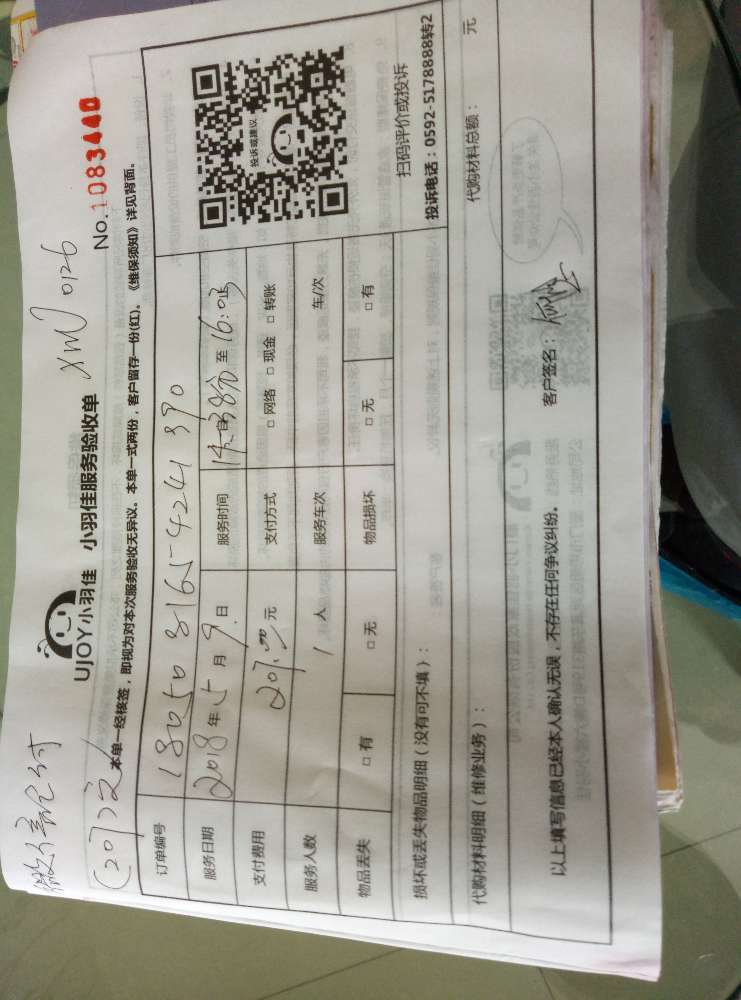 微信已付
(207元)
UJOY小羽佳 小羽佳服务验收单 XMJ 0126
No.1083440
本单一经核签，即视为对本次服务验收无异议。本单一式两份，客户留存一份(红)。《维保须知》详见背面。
订单编号 180508165424 1390
服务日期 2018年5月9日 服务时间 至16:03
支付费用 207.00元 支付方式 □网络 □现金 □转账
服务人数 1人 服务车次 车/次
物品丢失 □有 □无 物品损坏 □无 □有
投诉或建议
扫码评价或投诉
投诉电话：0592-5178888转2
损坏或丢失物品明细（没有可不填）：
代购材料明细（维修业务）： 代购材料总额： 元
以上填写信息已经本人确认无误，不存在任何争议纠纷。 客户签名：